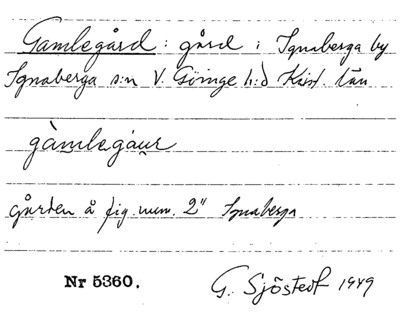 Gamlegård : gård i Ignaberga by
Ignaberga s:n V. Göinge h:d Krist. län
gàmlegáur
gården å fig. num. 2" Ignaberga
Nr 5360.
G. Sjöstedt 1949